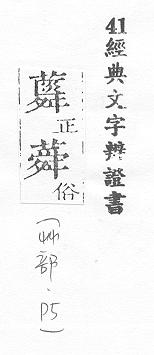 41 經典文字辨證書
正
俗
(艸部.P5)